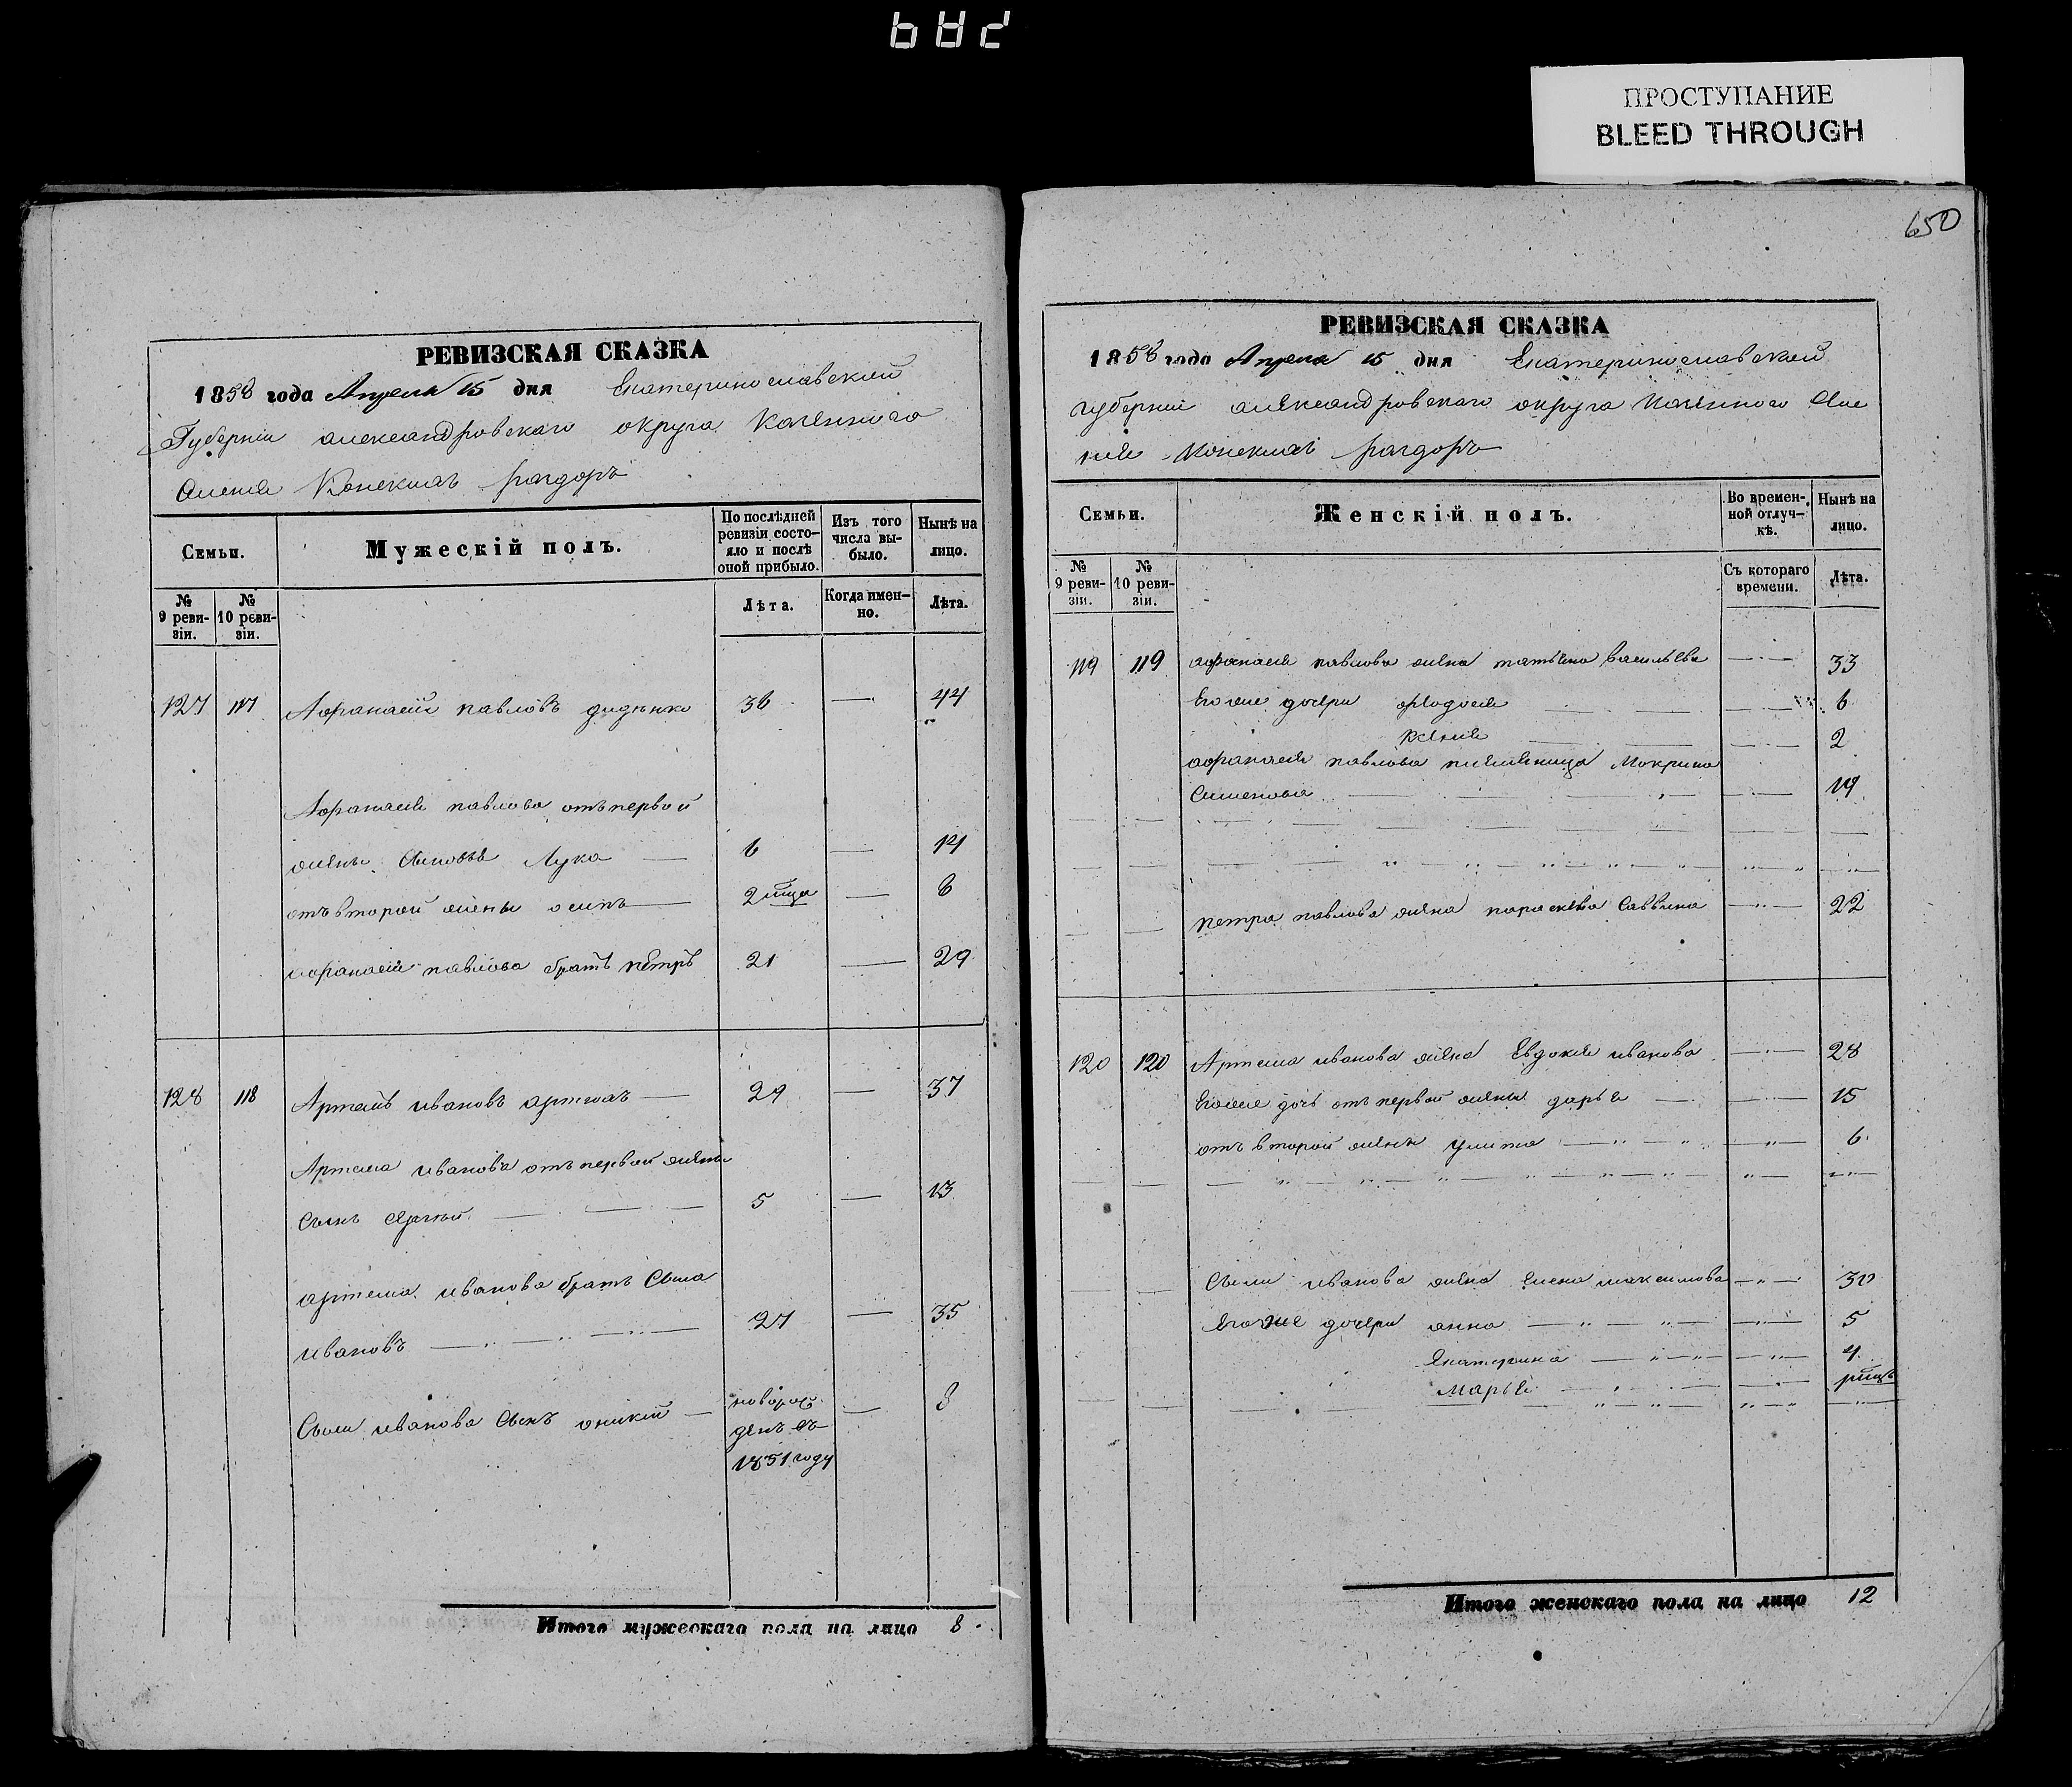 ПРОСТУПАНИЕ
BLEED THROUGH
650
РЕВИЗСКАЯ СКАЗКА
1858 года Апреля 15 дня Екатеринославской
Губернии александровскаго округа казенного
Селенiя Конскихъ раздоръ
Семьи.
Мужескій полъ.
По послѣдней ревизіи состо-яло и послѣ оной прибыло.
Изъ того числа вы-было.
Нынѣ на лицо.
№ 9 реви-зіи.
№ 10 реви-зіи.
Лѣта.
Когда имен-но.
Лѣта.
127 117 Афанасий павловъ диденко 36 — 44
Афанасия павлова отъ первой
жены Сыновья Лука — 6 — 14
отъ второй жены осипъ — 2 — 8
афанасия павлова братъ петръ 21 — 29
128 118 Артемъ ивановъ — 29 — 37
Артема иванова отъ первой жены
Сынъ 5 — 13
артема иванова братъ Сыла
ивановъ — 27 — 35
Сылы иванова Сынъ оникий — новорож
денъ въ
1851 году — 8
Итого мужескаго пола на лицо 8
РЕВИЗСКАЯ СКАЗКА
1858 года Апреля 15 дня Екатеринославской
губернии александровскаго округа казенного Селе
нія Конскихъ раздоръ
Семьи.
Женскій полъ.
Во времен-ной отлуч-кѣ.
Нынѣ на лицо.
№ 9 реви-зіи.
№ 10 реви-зіи.
Съ котораго времени.
Лѣта.
119 119 афанасия павлова жена татьяна васильева — 33
Его же дочери феодосия — 6
ксения — 2
афанасия павлова племянница Мокрина
Семенова — 19
петра павлова жена параскева Саввина — 22
120 120 Артема иванова жена Евдокия иванова — 28
Его же дочь отъ первой жены дарья — 15
отъ второй жены улита — 6
Сылы иванова жена елена максимова — 30
Его же дочери анна — 5
Екатерина — 4
Марья —
Итого женскаго пола на лицо 12